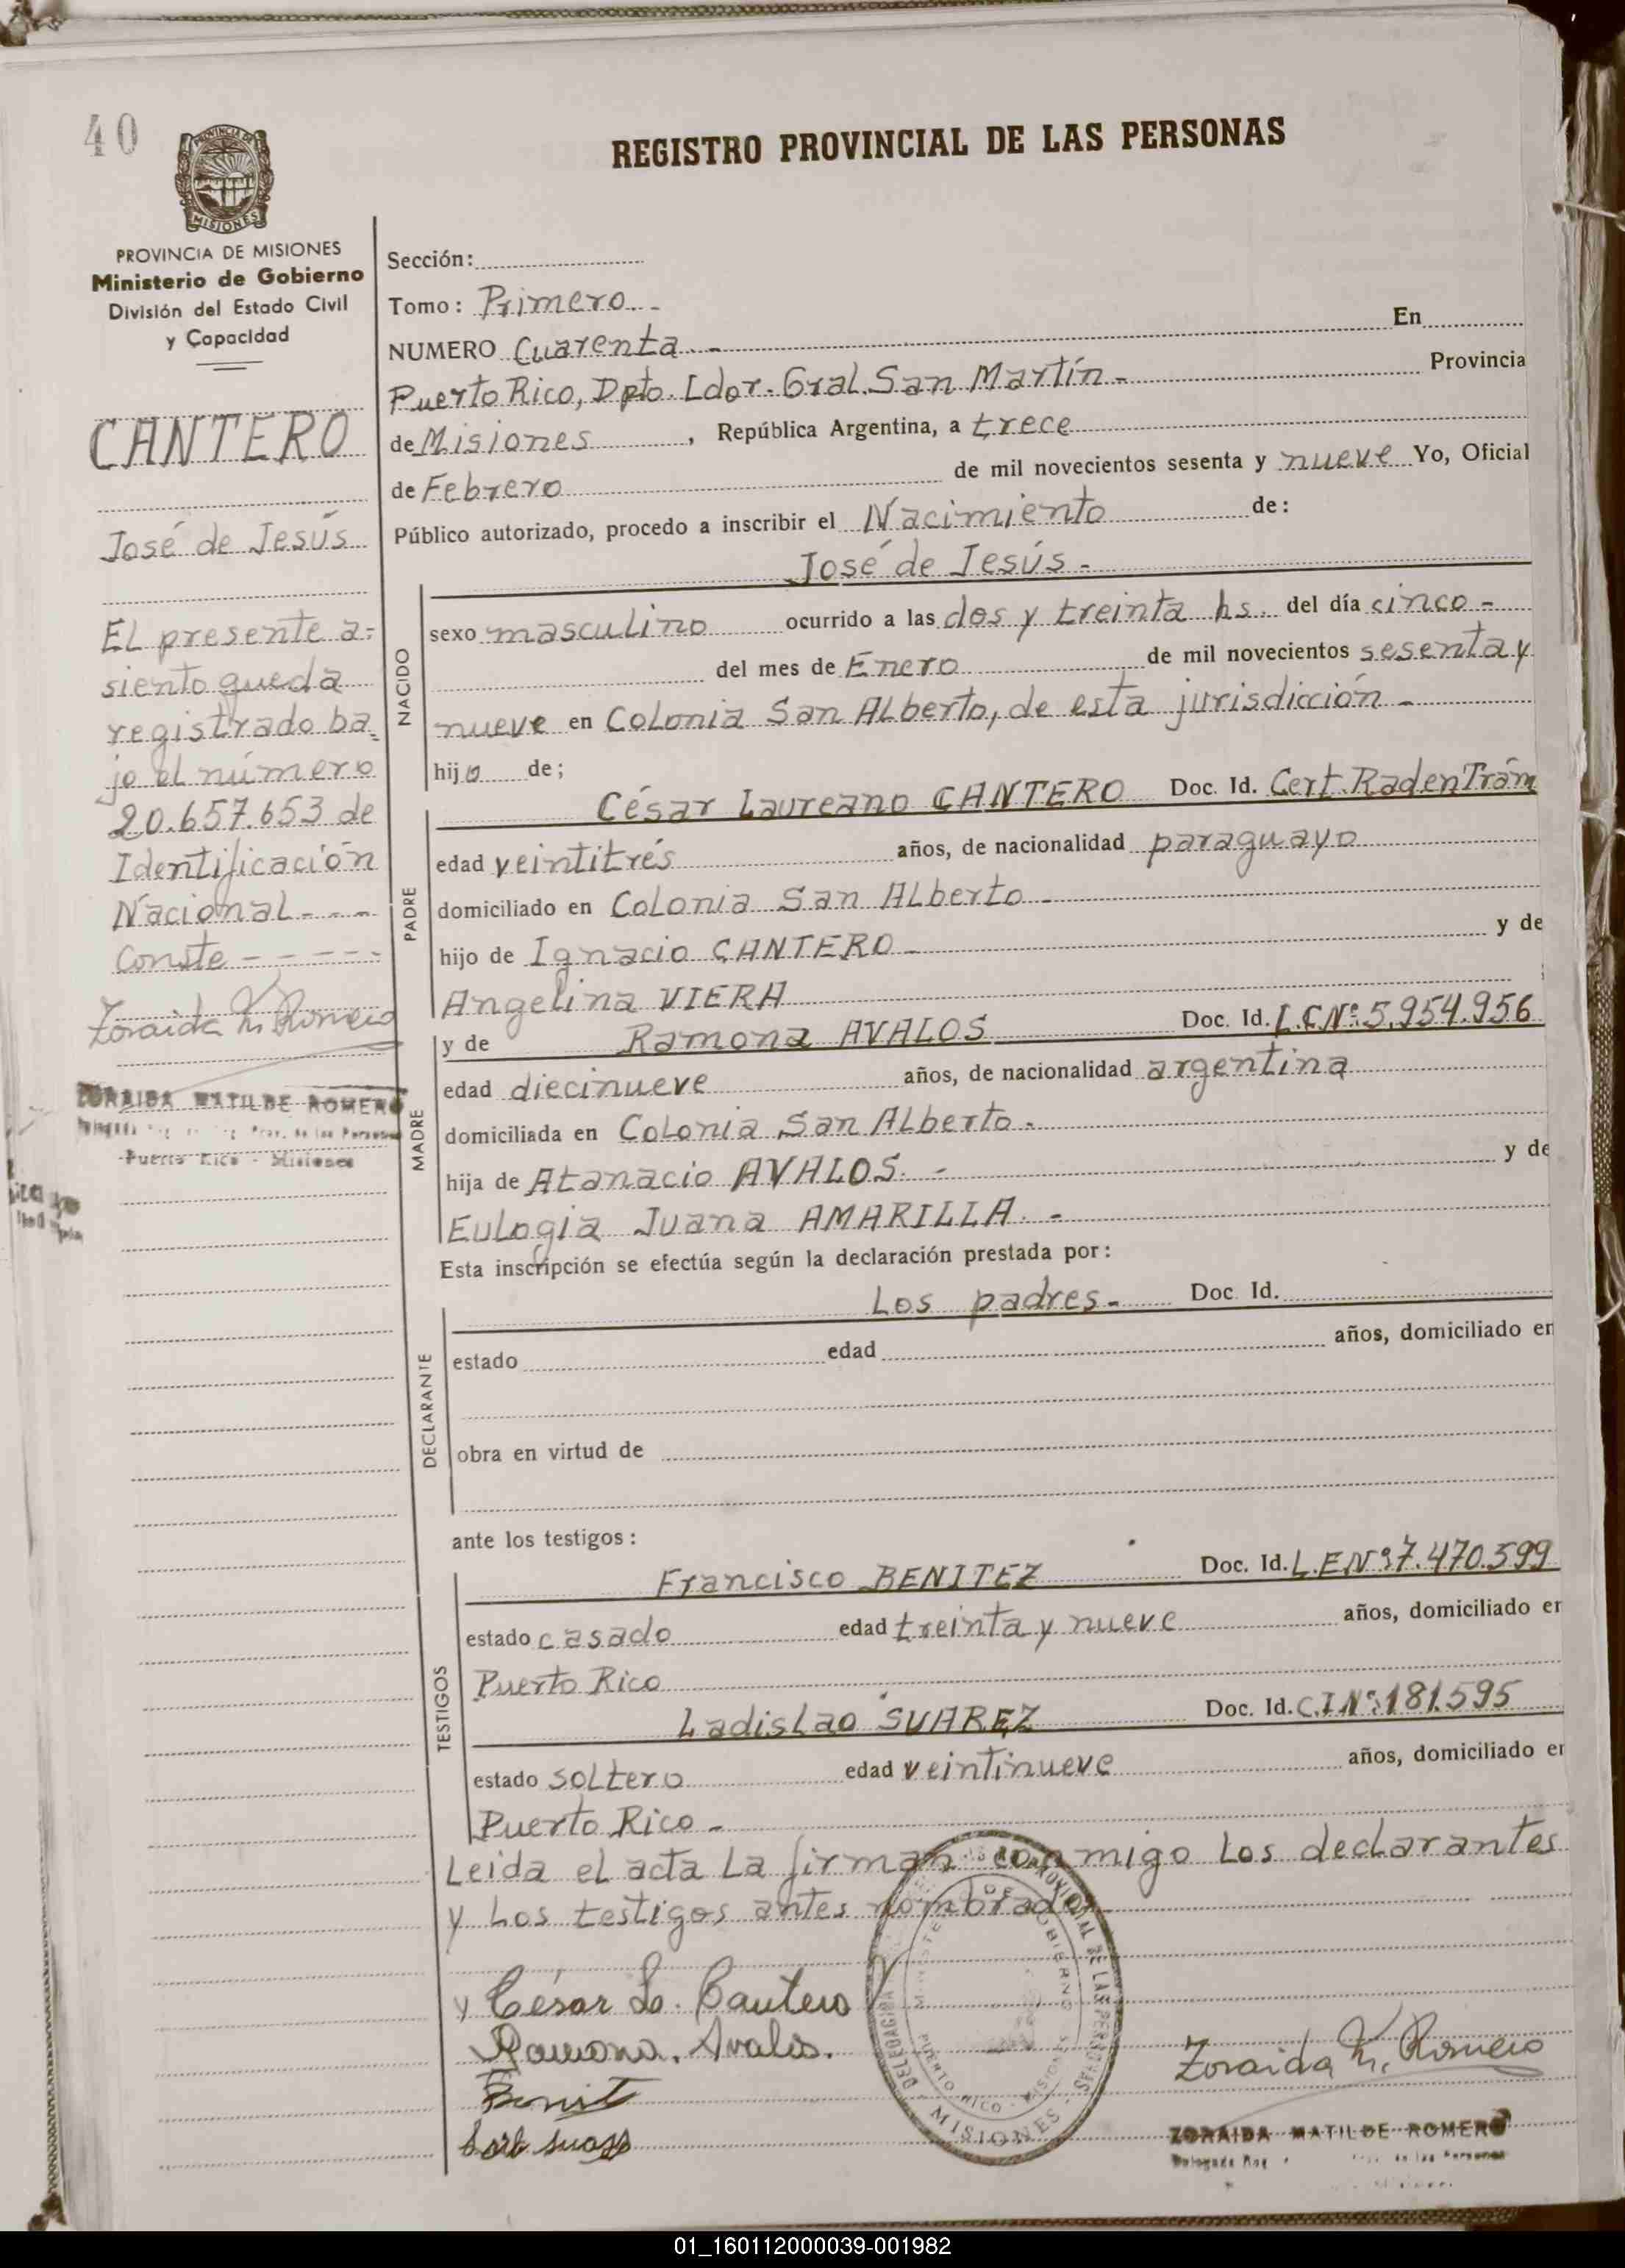 40
PROVINCIA DE
MISIONES
PROVINCIA DE MISIONES
Ministerio de Gobierno
División del Estado Civil
y Capacidad
CANTERO
José de Jesús
El presente a-
siento queda
registrado ba-
jo el número
20.657.653 de
Identificación
Nacional - - -
Conste - - - - -
Zoraida M. Romero
ZORAIDA MATILDE ROMERO
Puerto Rico - Misiones
REGISTRO PROVINCIAL DE LAS PERSONAS
Sección:
Tomo: Primero. -
NUMERO Cuarenta. - En
Puerto Rico, Dpto. Ldor. Gral. San Martín - Provincia
de Misiones, República Argentina, a trece
de Febrero de mil novecientos sesenta y nueve Yo, Oficial
Público autorizado, procedo a inscribir el Nacimiento de:
José de Jesús -
NACIDO
sexo masculino ocurrido a las dos y treinta hs. del día cinco -
del mes de Enero de mil novecientos sesenta y
nueve en Colonia San Alberto, de esta jurisdicción -
hijo de;
PADRE
César Laureano CANTERO Doc. Id. Cert. Rad en Trám
edad veintitrés años, de nacionalidad paraguayo
domiciliado en Colonia San Alberto -
hijo de Ignacio CANTERO - y de
Angelina VIERA
MADRE
y de Ramona AVALOS Doc. Id. L.C.Nº 5.954.956
edad diecinueve años, de nacionalidad argentina
domiciliada en Colonia San Alberto -
hija de Atanacio AVALOS. - y de
Eulogia Juana AMARILLA. -
Esta inscripción se efectúa según la declaración prestada por:
DECLARANTE
Los padres - Doc. Id.
estado edad años, domiciliado en
obra en virtud de
ante los testigos:
TESTIGOS
Francisco BENITEZ Doc. Id. L.E.Nº 7.470.599
estado casado edad treinta y nueve años, domiciliado en
Puerto Rico
Ladislao SUAREZ Doc. Id. C.I.Nº 181.595
estado soltero edad veintinueve años, domiciliado en
Puerto Rico -
Leida el acta la firman conmigo los declarantes
y los testigos antes nombrados
y César L. Cantero
Ramona. Avalos.
Benit
Zoraida M. Romero
DELEGACION PROVINCIAL DE LAS PERSONAS
MINISTERIO DE GOBIERNO
PUERTO RICO - MISIONES
MISIONES
ZORAIDA MATILDE ROMERO
01_160112000039-001982